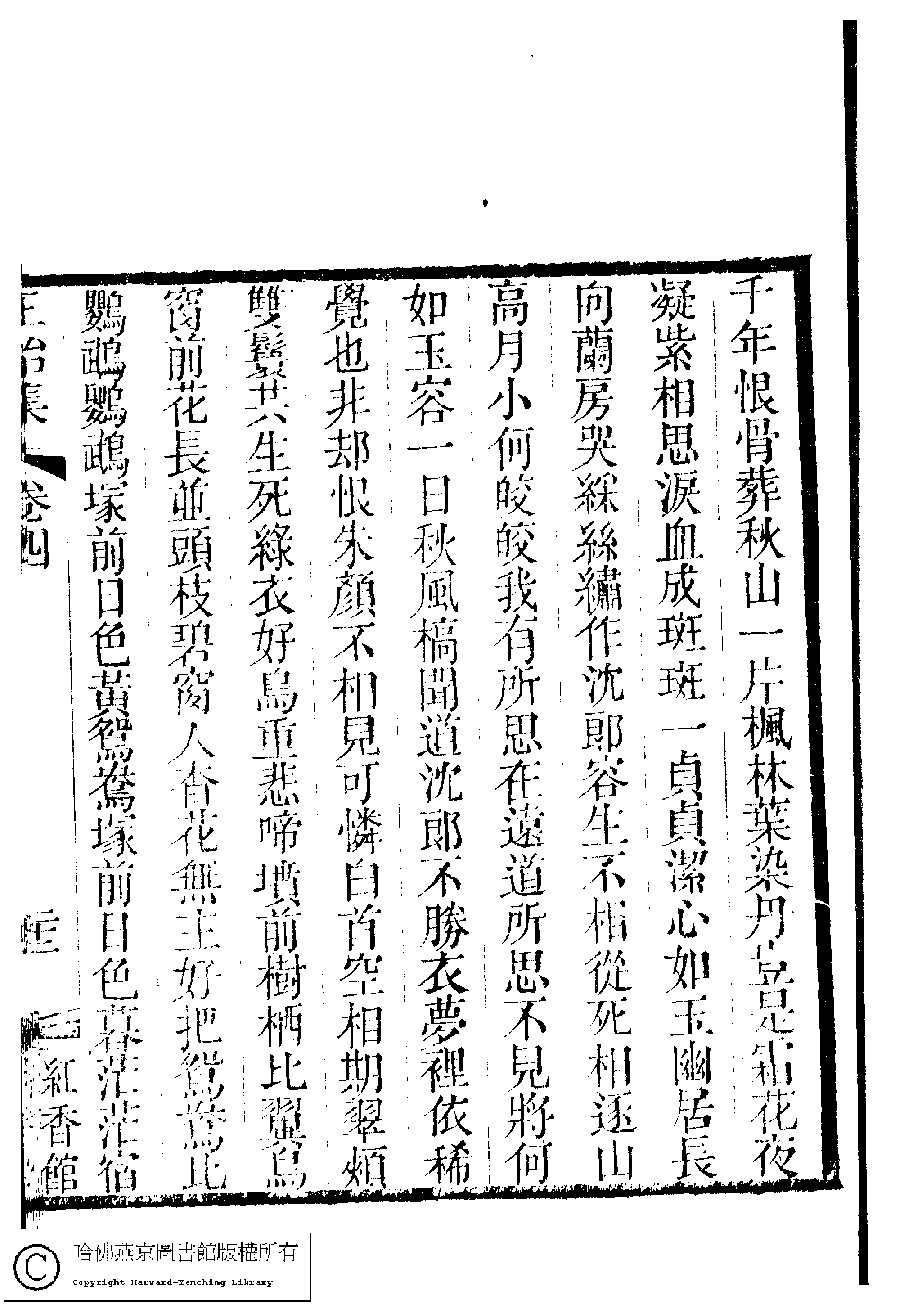 千年恨骨葬秋山一片楓林葉染丹豈是霜花夜
凝紫相思淚血成斑斑一貞貞潔心如玉幽居長
向蘭房哭綵絲繡作沈郎容生不相從死相逐山
高月小何皎皎我有所思在遠道所思不見將何
如玉容一日秋風槁聞道沈郎不勝衣夢裡依稀
覺也非却恨朱顏不相見可憐白首空相期翠頰
雙鬟共生死綠衣好鳥重悲啼墳前樹栖比翼鳥
窗前花長並頭枝碧窗人杳花無主好把鴛鴦比
鸚鵡鸚鵡塚前日色黃鴛鴦塚前日色暮茫茫宿
正始集 卷四 紅香館
哈佛燕京圖書館版權所有
Copyright Harvard-Yenching Library